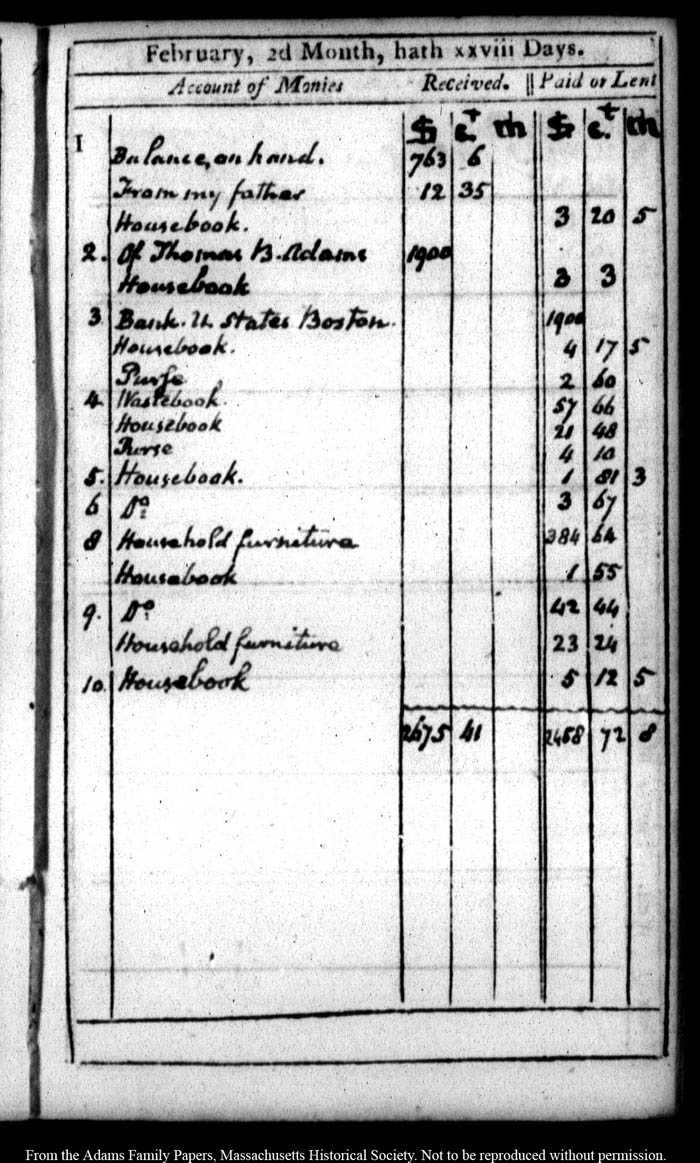 February, 2d Month, hath xxviii Days.
Account of Monies Received. || Paid or Lent
$ ct m $ ct m
1 Balance, on hand. 763 6
From my father 12 35
Housebook. 3 20 5
2. Of Thomas B. Adams 1900
Housebook 3 3
3 Bank. U. States Boston. 1900
Housebook. 4 17 5
Purse 2 60
4. Wastebook. 57 66
Housebook 21 48
Purse 4 10
5. Housebook. 1 81 3
6 Do 3 67
8 Household furniture 384 64
Housebook 1 55
9. Do 42 44
Household furniture 23 24
10. Housebook 5 12 5
2675 41 2458 72 8
From the Adams Family Papers, Massachusetts Historical Society. Not to be reproduced without permission.